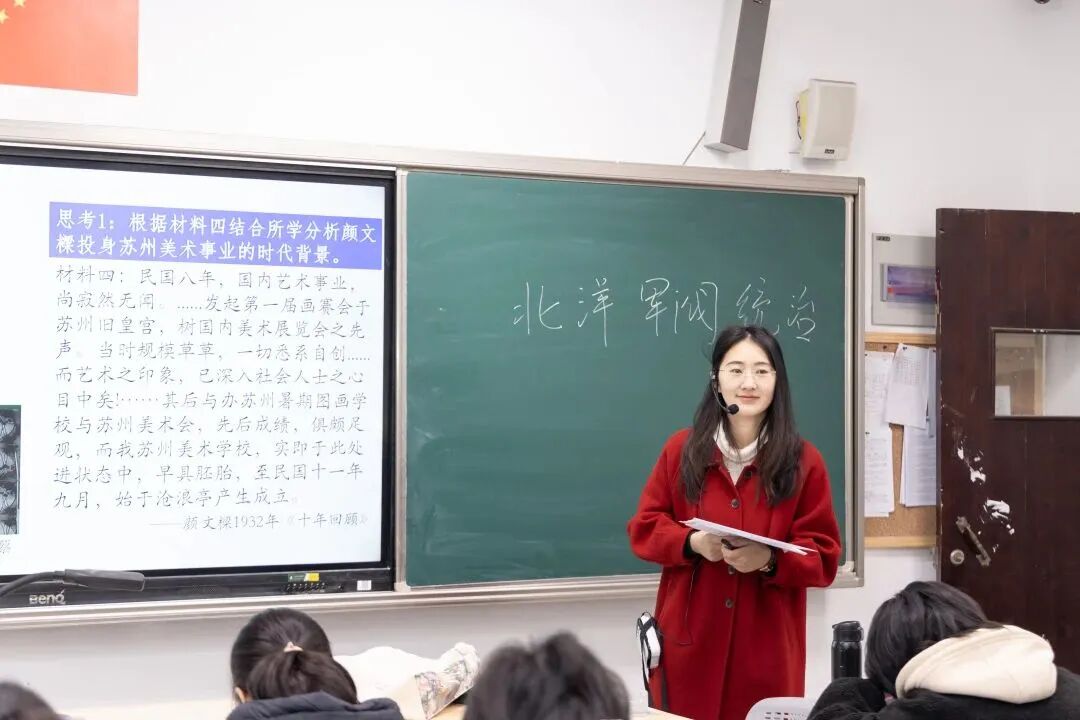 思考1：根据材料四结合所学分析颜文
樑投身苏州美术事业的时代背景。
材料四：民国八年，国内艺术事业，
尚寂然无闻。……发起第一届画赛会于
苏州旧皇宫，树国内美术展览会之先
声。当时规模草草，一切悉系自创……
而艺术之印象，已深入社会人士之心
目中矣!……其后与办苏州暑期图画学
校与苏州美术会，先后成绩，俱颇足
观，而我苏州美术学校，实即于此处
进状态中，早具胚胎，至民国十一年
九月，始于沧浪亭产生成立。
——颜文樑1932年《十年回顾》
BenQ
北洋军阀统治